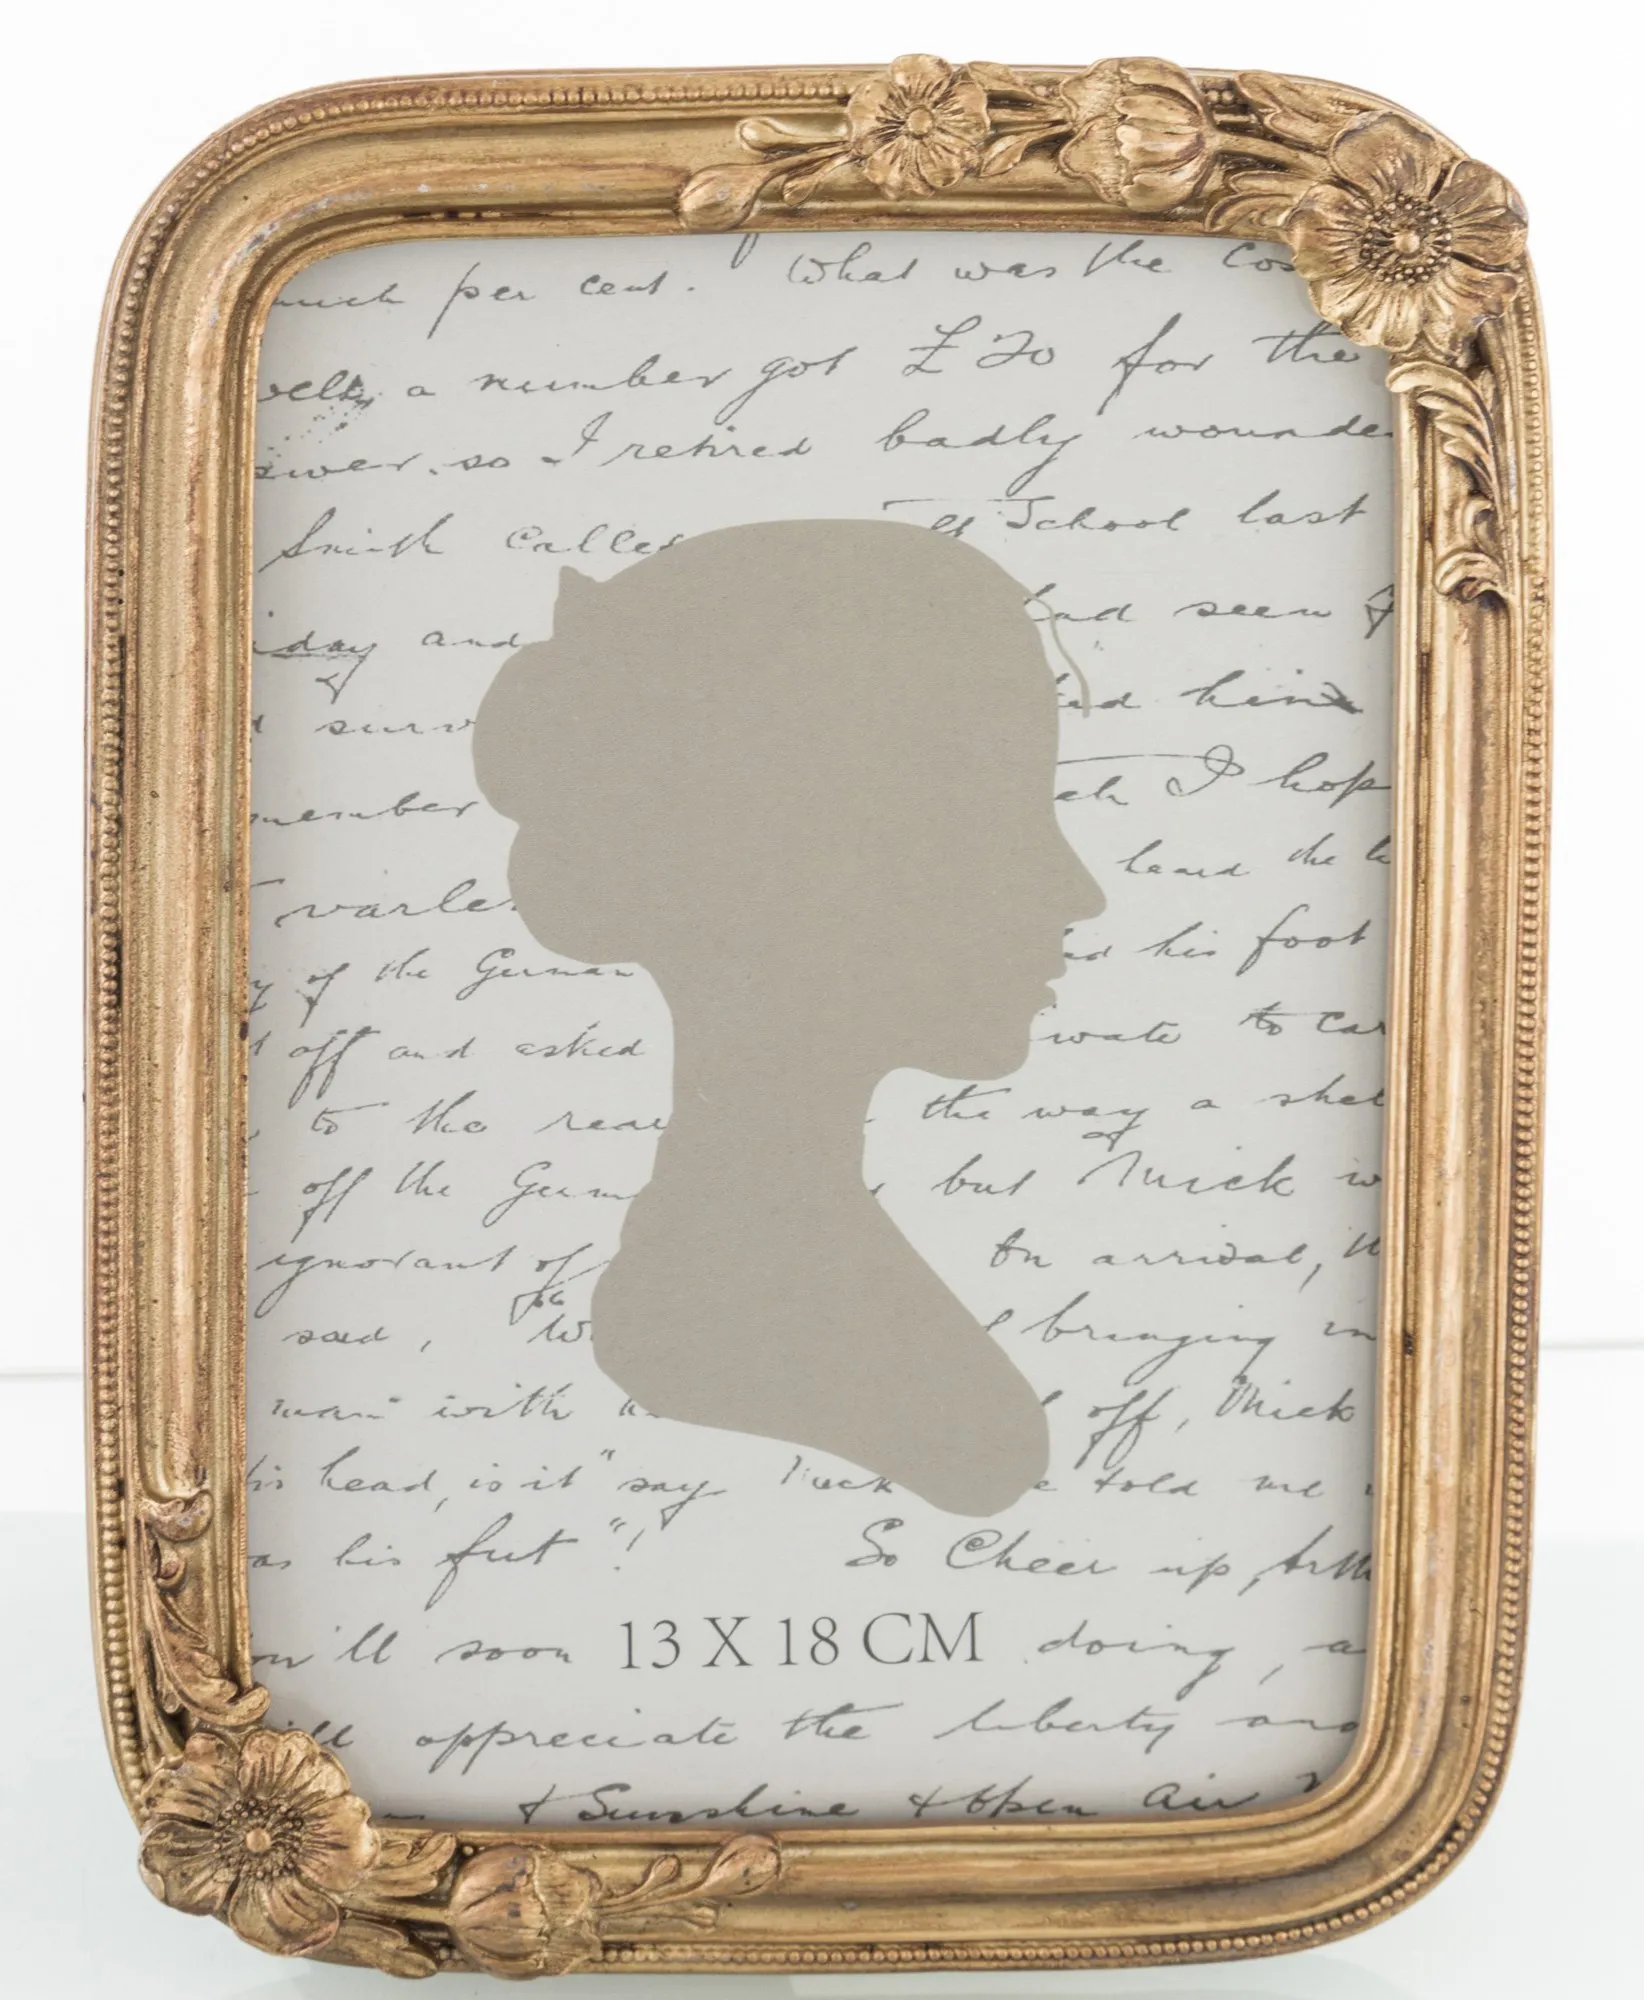 much per cent. What was the Cos
a number got £20 for the
swer. so I retired badly wounde
Smith Called School last
day and had seen
surv him
member ch I hop
varle heard the
of the German his foot
off and asked to car
to the rear the way a shel
off the Germ but Mick w
ignorant of On arrival,
said, bringing in
man with off, Mick
his head, is it" say told me
as his feet"! So Cheer up,
'll soon 13 X 18 CM doing, a
appreciate the liberty and
& Sunshine & open Air